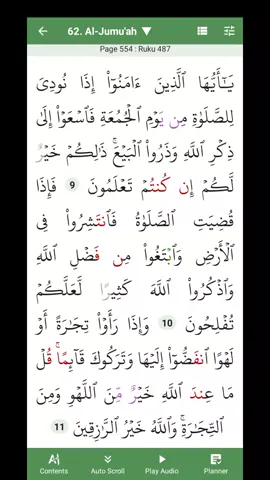 62. Al-Jumu'ah ▼
Page 554 : Ruku 487
يَـٰٓأَيُّهَا ٱلَّذِينَ ءَامَنُوٓا۟ إِذَا نُودِىَ
لِلصَّلَوٰةِ مِن يَوْمِ ٱلْجُمُعَةِ فَٱسْعَوْا۟ إِلَىٰ
ذِكْرِ ٱللَّهِ وَذَرُوا۟ ٱلْبَيْعَ ۚ ذَٰلِكُمْ خَيْرٌ
لَّكُمْ إِن كُنتُمْ تَعْلَمُونَ 9 فَإِذَا
قُضِيَتِ ٱلصَّلَوٰةُ فَٱنتَشِرُوا۟ فِى
ٱلْأَرْضِ وَٱبْتَغُوا۟ مِن فَضْلِ ٱللَّهِ
وَٱذْكُرُوا۟ ٱللَّهَ كَثِيرًا لَّعَلَّكُمْ
تُفْلِحُونَ 10 وَإِذَا رَأَوْا۟ تِجَـٰرَةً أَوْ
لَهْوًا ٱنفَضُّوٓا۟ إِلَيْهَا وَتَرَكُوكَ قَآئِمًا ۚ قُلْ
مَا عِندَ ٱللَّهِ خَيْرٌ مِّنَ ٱللَّهْوِ وَمِنَ
ٱلتِّجَـٰرَةِ ۚ وَٱللَّهُ خَيْرُ ٱلرَّٰزِقِينَ 11
Contents Auto Scroll Play Audio Planner